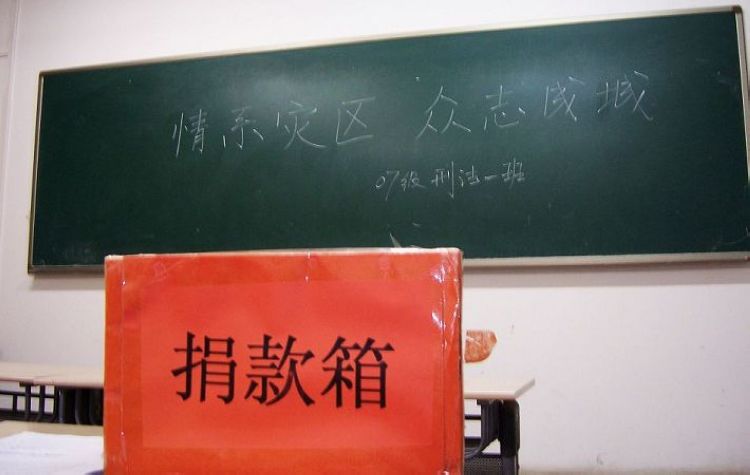 情系灾区 众志成城
07级刑法一班
捐款箱